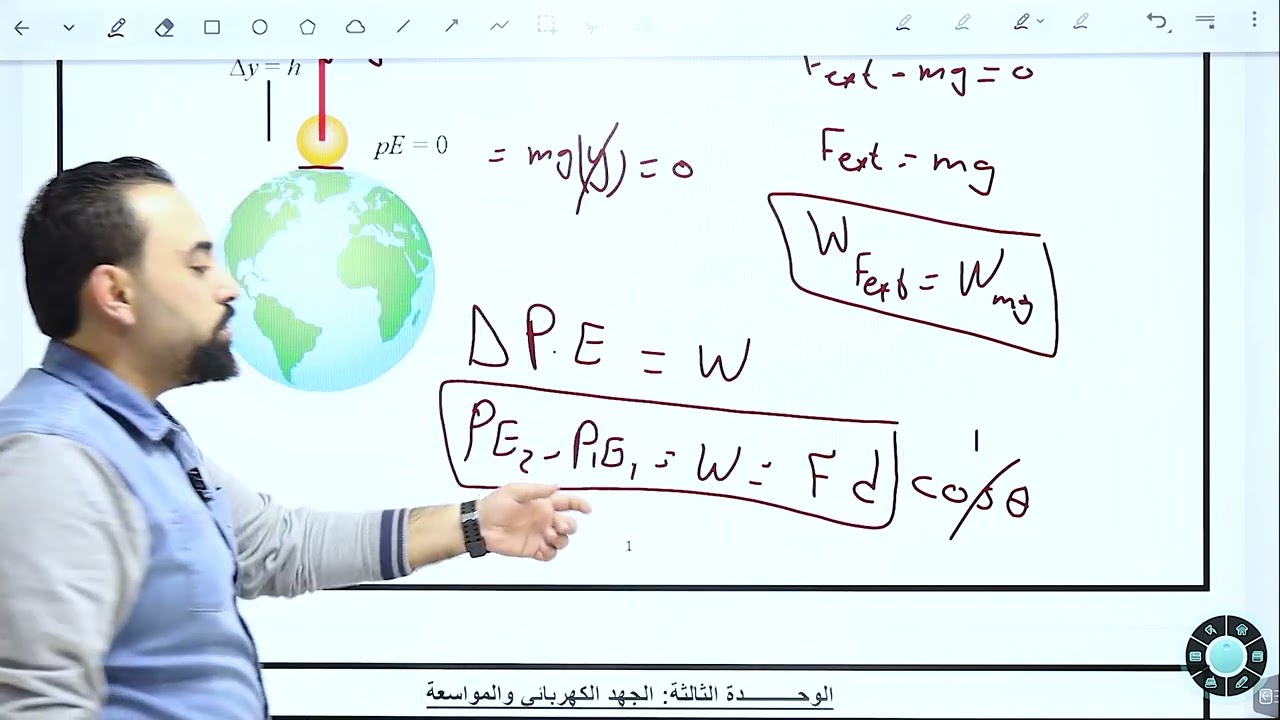 Δy = h
Fext - mg = 0
pE = 0
= mg(y) = 0
Fext = mg
WFext = Wmg
Δ P.E = W
PE2 - P.E1 = W = F d cosθ
1
1
الوحدة الثالثة: الجهد الكهربائي والمواسعة